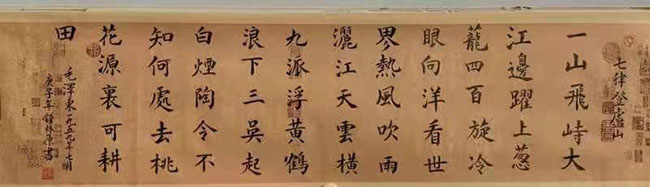 七律登盧山
一山飛峙大
江邊躍上葱
蘢四百旋冷
眼向洋看世
界熱風吹雨
灑江天雲橫
九派浮黃鶴
浪下三吳起
白煙陶令不
知何處去桃
花源裏可耕
田
毛澤東一九五九年七月
庚子年鍾林原書